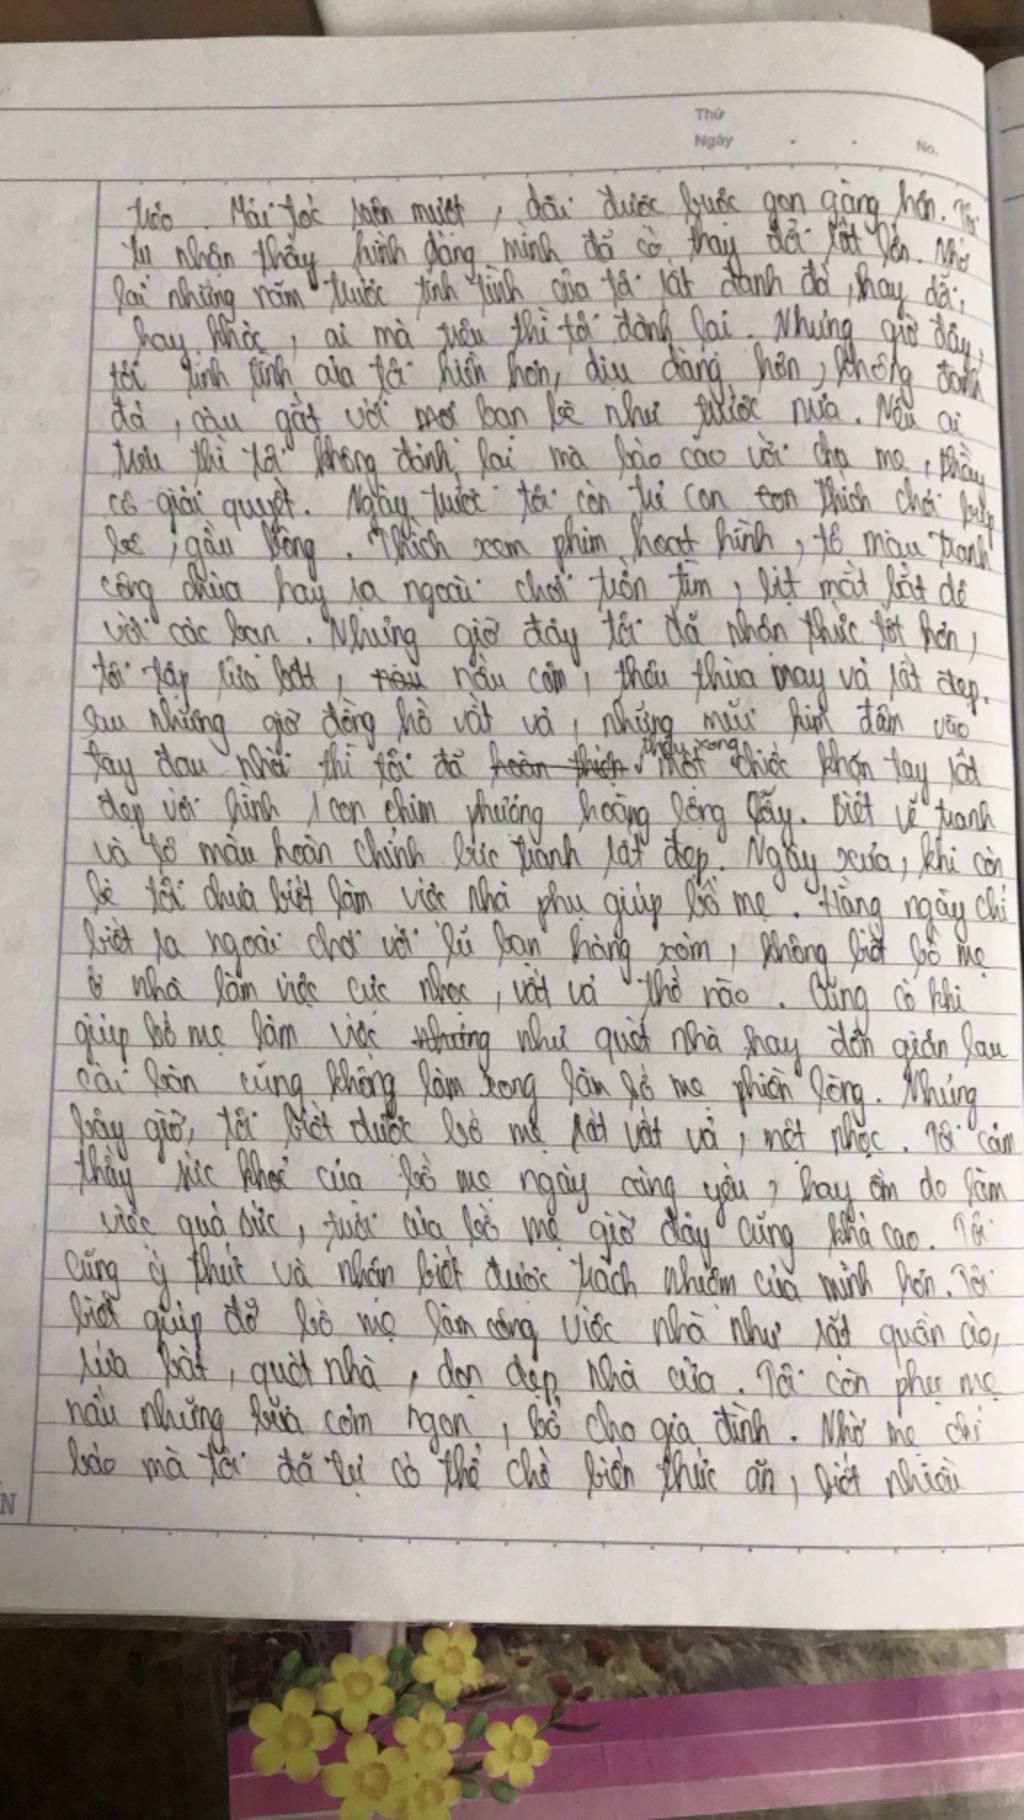 Thứ
Ngày . . No.
trẻo. Mái tóc suôn mượt, dài được buộc gọn gàng hơn. Tôi
tự nhận thấy hình dáng mình đã có thay đổi rất lớn. Nhớ
lại những năm trước tính tình của tôi rất đanh đá, hay dỗi,
hay khóc, ai mà trêu thì tôi đánh lại. Nhưng giờ đây,
tôi tính tình của tôi hiền hơn, dịu dàng hơn, không đanh
đá, càu gắt với mọi bạn bè như trước nữa. Nếu ai
trêu thì tôi không đánh lại mà báo cáo với cha mẹ, thầy
cô giải quyết. Ngày trước tôi còn trẻ con con thích chơi búp
bê, gấu bông. Thích xem phim hoạt hình, tô màu tranh
công chúa hay ra ngoài chơi trốn tìm, bịt mắt bắt dê
với các bạn. Nhưng giờ đây tôi đã nhận thức tốt hơn,
tôi tập rửa bát, nấu nấu cơm, thêu thùa may vá rất đẹp.
Sau những giờ đồng hồ vất vả, những mũi kim đâm vào
tay đau nhói thì tôi đã hoàn thiện thêu xong một chiếc khăn tay rất
đẹp với hình 1 con chim phượng hoàng lộng lẫy. Biết vẽ tranh
và tô màu hoàn chỉnh bức tranh rất đẹp. Ngày xưa, khi còn
bé tôi chưa biết làm việc nhà phụ giúp bố mẹ. Hằng ngày chỉ
biết ra ngoài chơi với lũ bạn hàng xóm, không biết bố mẹ
ở nhà làm việc cực nhọc, vất vả thế nào. Cũng có khi
giúp bố mẹ làm việc nhưng như quét nhà hay đơn giản lau
cái bàn cũng không làm xong làm bố mẹ phiền lòng. Nhưng
bây giờ, tôi biết được bố mẹ rất vất vả, mệt nhọc. Tôi cảm
thấy sức khoẻ của bố mẹ ngày càng yếu, hay ốm do làm
việc quá sức, tuổi của bố mẹ giờ đây cũng khá cao. Tôi
cũng ý thức và nhận biết được trách nhiệm của mình hơn. Tôi
biết giúp đỡ bố mẹ làm công việc nhà như rặt quần áo,
rửa bát, quét nhà, dọn dẹp nhà cửa. Tôi còn phụ mẹ
nấu những bữa cơm ngon, bổ cho gia đình. Nhờ mẹ chỉ
bảo mà tôi đã tự có thể chế biến thức ăn, biết nhiều
N